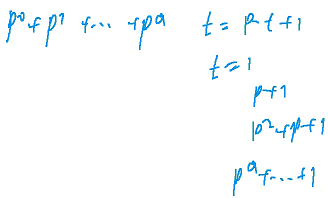 p⁰+p¹ +... +pᵃ
t = p t +1
t = 1
p+1
p²+p+1
pᵃ+...+1